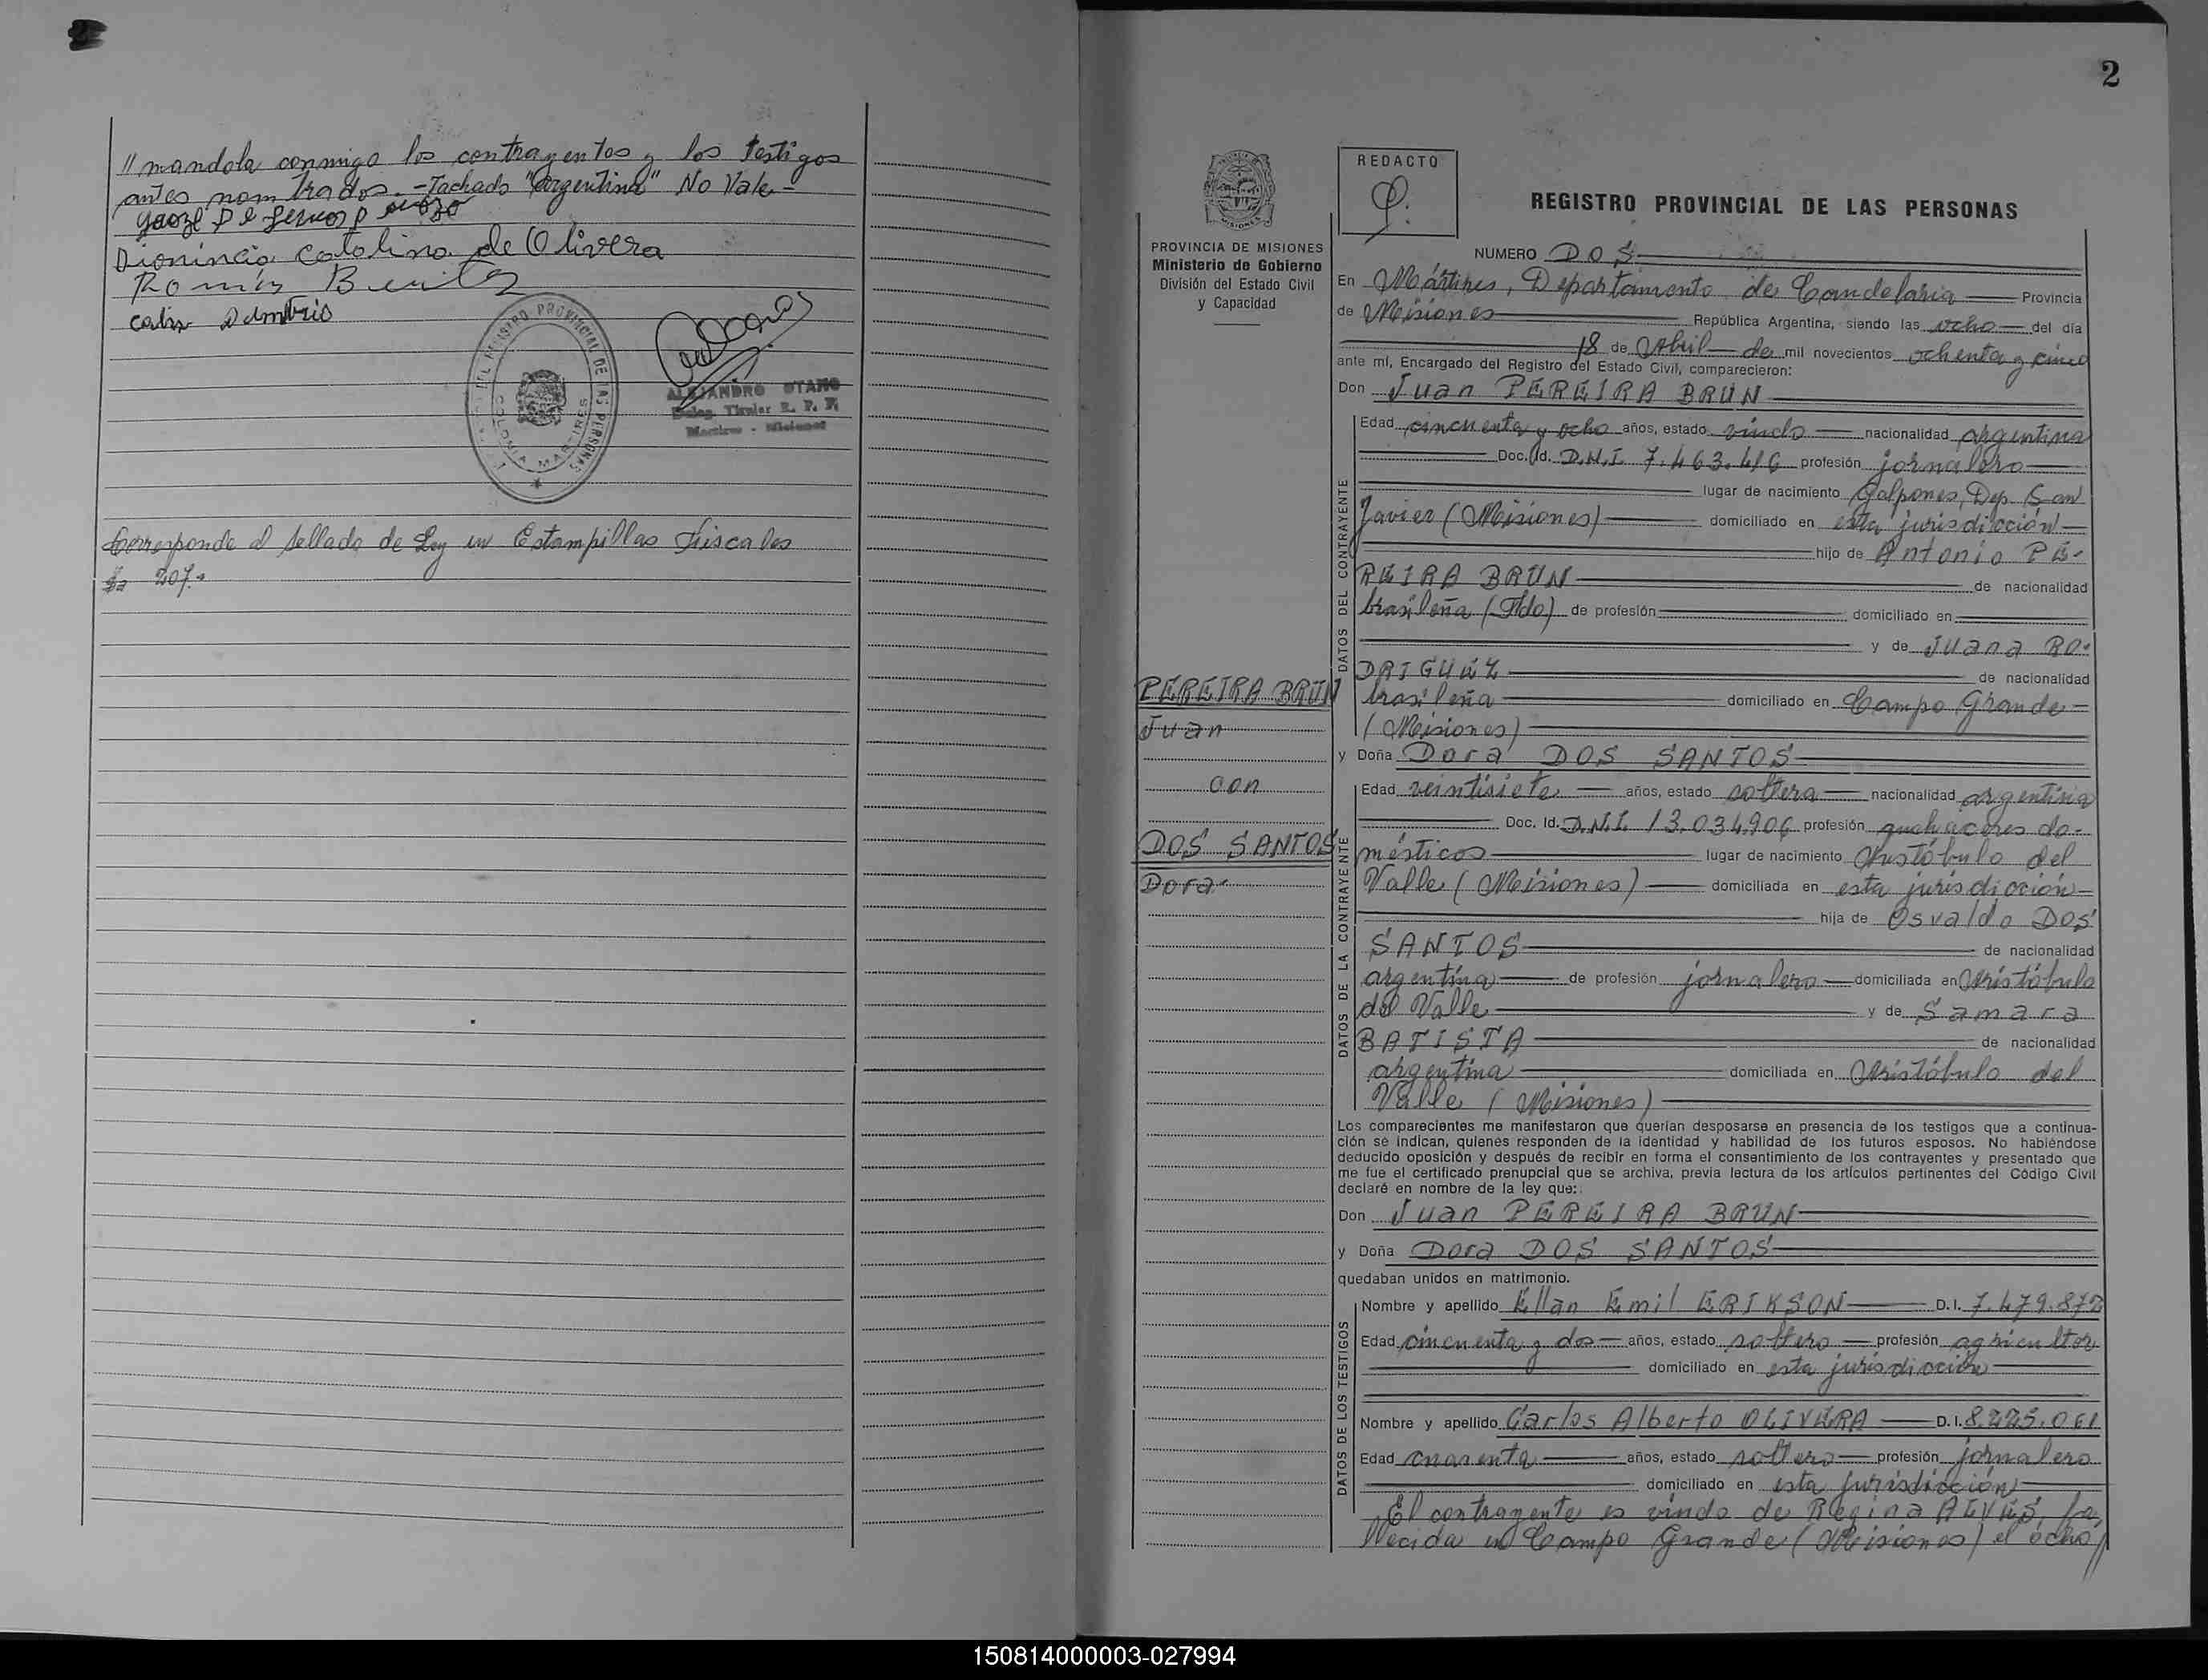 // mandola conmigo los contrayentes y los testigos
antes nombrados.- Tachado "argentina" No Vale-
Dionincia Catolino de Olivera
Román
Corresponde al sellado de Ley en Estampillas Fiscales
$a 207.-
REGISTRO PROVINCIAL DE LAS PERSONAS
COLONIA MARTIRES
ALEJANDRO OTAÑO
Deleg. Titular R. P. P.
Martires - Misiones
2
PROVINCIA DE MISIONES
Ministerio de Gobierno
División del Estado Civil
y Capacidad
PEREIRA BRUN
Juan
con
DOS SANTOS
Dora.
REDACTO
REGISTRO PROVINCIAL DE LAS PERSONAS
NUMERO DOS
En Mártires, Departamento de Candelaria Provincia
de Misiones República Argentina, siendo las ocho del día
18 de Abril de mil novecientos ochenta y cinco
ante mí, Encargado del Registro del Estado Civil, comparecieron:
Don Juan PEREIRA BRUN
DATOS DEL CONTRAYENTE
Edad cincuenta y ocho años, estado viudo nacionalidad argentina
Doc. Id. D.N.I. 7.463.416 profesión jornalero
lugar de nacimiento Galpones, Dep. San
Javier (Misiones) domiciliado en esta jurisdicción
hijo de Antonio PE-
REIRA BRUN de nacionalidad
brasileña (Fdo) de profesión domiciliado en
y de Juana RO-
DRIGUEZ de nacionalidad
brasileña domiciliado en Campo Grande
(Misiones)
y Doña Dora DOS SANTOS
DATOS DE LA CONTRAYENTE
Edad veintisiete años, estado soltera nacionalidad argentina
Doc. Id. D.N.I. 13.034.906 profesión quehaceres do-
mésticos lugar de nacimiento Aristóbulo del
Valle (Misiones) domiciliada en esta jurisdicción
hija de Osvaldo DOS
SANTOS de nacionalidad
argentina de profesión jornalero domiciliada en Aristóbulo
del Valle y de Samara
BATISTA de nacionalidad
argentina domiciliada en Aristóbulo del
Valle (Misiones)
Los comparecientes me manifestaron que querían desposarse en presencia de los testigos que a continua-
ción se indican, quienes responden de la identidad y habilidad de los futuros esposos. No habiéndose
deducido oposición y después de recibir en forma el consentimiento de los contrayentes y presentado que
me fue el certificado prenupcial que se archiva, previa lectura de los artículos pertinentes del Código Civil
declaré en nombre de la ley que:
Don Juan PEREIRA BRUN
y Doña Dora DOS SANTOS
quedaban unidos en matrimonio.
DATOS DE LOS TESTIGOS
Nombre y apellido Ellan Emil ERIKSON D.I. 7.479.872
Edad cincuenta y dos años, estado soltero profesión agricultor
domiciliado en esta jurisdicción
Nombre y apellido Carlos Alberto OLIVERA D.I. 8.225.061
Edad cuarenta años, estado soltero profesión jornalero
domiciliado en esta jurisdicción
El contrayente es viudo de Regina ALVES, fa-
llecida en Campo Grande (Misiones) el ocho//
150814000003-027994